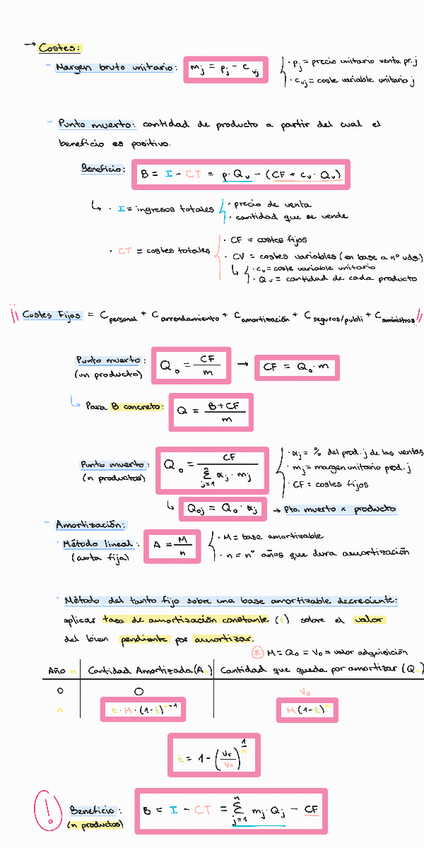 → Costes:
- Margen bruto unitario: m_j = p_j - c_vj
· p_j = precio unitario venta pr. j
· c_vj = coste variable unitario j
- Punto muerto: cantidad de producto a partir del cual el
beneficio es positivo.
Beneficio: B = I - CT = p·Q_v - (CF + c_v·Q_v)
↳ · I = ingresos totales
· precio de venta
· cantidad que se vende
· CT = costes totales
· CF = costes fijos
· CV = costes variables (en base a nº uds)
↳ · c_v = coste variable unitario
· Q_v = cantidad de cada producto
!! Costes Fijos = C personal + C arrendamiento + C amortización + C seguros/publi + C suministros !!
Punto muerto: (un producto) Q_o = CF / m → CF = Q_o · m
↳ Para B concreto: Q = B + CF / m
Punto muerto: (n productos) Q_o = CF / Σ_{j=1}^{n} α_j · m_j
· α_j = % del prod. j de las ventas
· m_j = margen unitario prod. j
· CF = costes fijos
↳ Q_oj = Q_o · α_j → Pto. muerto x producto
- Amortización:
· Método lineal: (cuota fija) A = M / n
· M = base amortizable
· n = nº años que dura amortización
· Método del tanto fijo sobre una base amortizable decreciente:
aplicar tasa de amortización constante (t) sobre el valor
del bien pendiente por amortizar.
* M = Q_o = V_o = valor adquisición
Año n | Cantidad Amortizada (A_n) | Cantidad que queda por amortizar (Q_n)
0 | 0 | V_o
n | t · M · (1-t)^{n-1} | M (1-t)^n
t = 1 - (V_r / V_o)^{1/n}
! Beneficio: (n productos) B = I - CT = Σ_{j=1}^{n} m_j · Q_j - CF